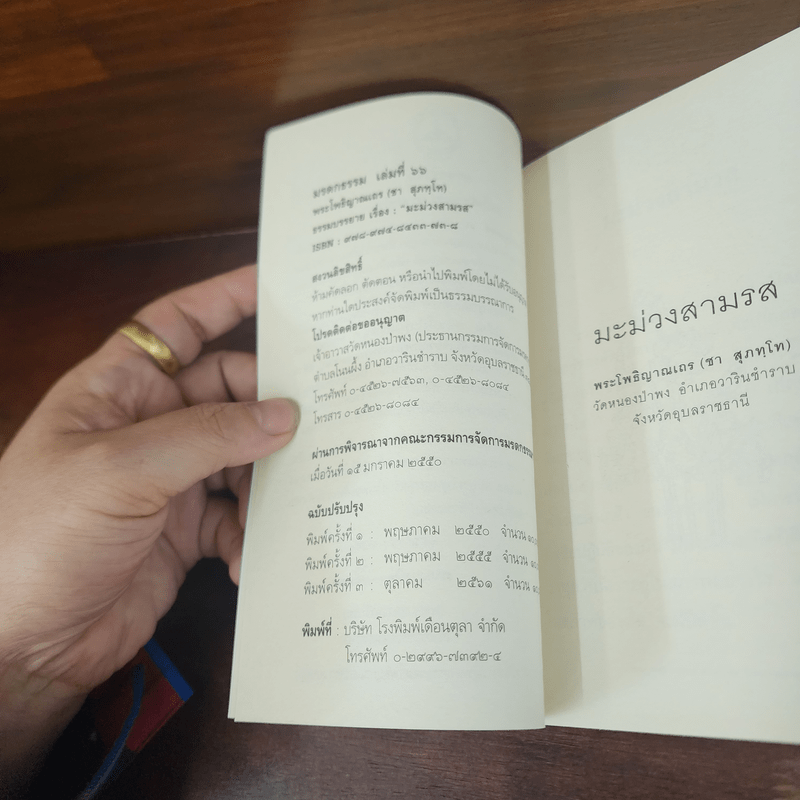 มรดกธรรม เล่มที่ ๖๖
พระโพธิญาณเถร (ชา สุภทฺโท)
ธรรมบรรยาย เรื่อง : "มะม่วงสามรส"
ISBN : ๙๗๘-๙๗๔-๘๔๓๓-๗๓-๘
สงวนลิขสิทธิ์
ห้ามคัดลอก ตัดตอน หรือนำไปพิมพ์โดยไม่ได้รับ
หากท่านใดประสงค์จัดพิมพ์เป็นธรรมบรรณาการ
โปรดติดต่อขออนุญาต
เจ้าอาวาสวัดหนองป่าพง (ประธานกรรมการจัดการ
ตำบลโนนผึ้ง อำเภอวารินชำราบ จังหวัดอุบลราชธานี
โทรศัพท์ ๐-๔๕๒๖-๗๕๖๓, ๐-๔๕๒๖-๘๐๘๔
โทรสาร ๐-๔๕๒๖-๘๐๘๔
ผ่านการพิจารณาจากคณะกรรมการจัดการมรดกธรรม
เมื่อวันที่ ๑๕ มกราคม ๒๕๕๐
ฉบับปรับปรุง
พิมพ์ครั้งที่ ๑ : พฤษภาคม ๒๕๕๐ จำนวน
พิมพ์ครั้งที่ ๒ : พฤษภาคม ๒๕๕๕ จำนวน
พิมพ์ครั้งที่ ๓ : ตุลาคม ๒๕๖๑ จำนวน
พิมพ์ที่ : บริษัท โรงพิมพ์เดือนตุลา จำกัด
โทรศัพท์ ๐-๒๙๙๖-๗๓๙๒-๔
มะม่วงสามรส
พระโพธิญาณเถร (ชา สุภทฺโท)
วัดหนองป่าพง อำเภอวารินชำราบ
จังหวัดอุบลราชธานี